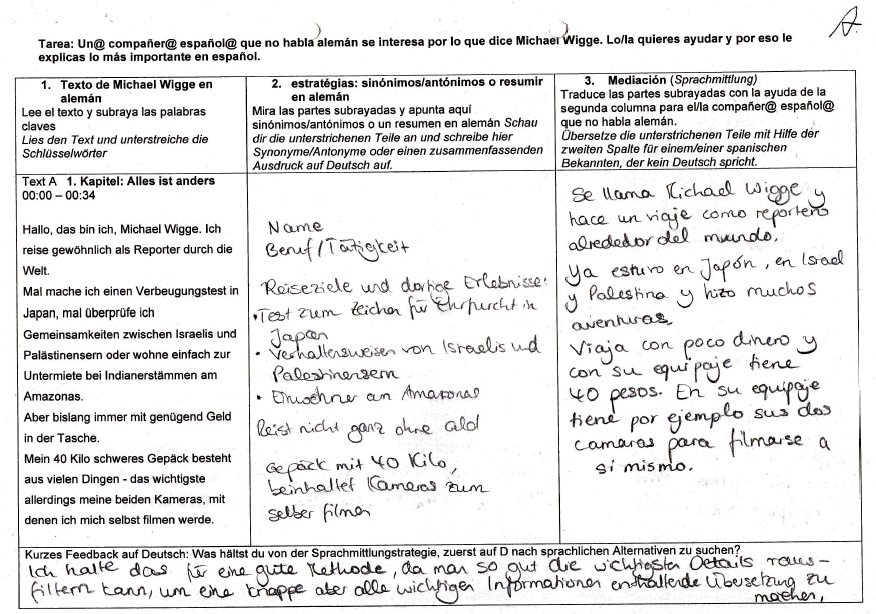 A.
Tarea: Un@ compañer@ español@ que no habla alemán se interesa por lo que dice Michael Wigge. Lo/la quieres ayudar y por eso le
explicas lo más importante en español.
1. Texto de Michael Wigge en
alemán
Lee el texto y subraya las palabras
claves
Lies den Text und unterstreiche die
Schlüsselwörter
2. estratégias: sinónimos/antónimos o resumir
en alemán
Mira las partes subrayadas y apunta aquí
sinónimos/antónimos o un resumen en alemán Schau
dir die unterstrichenen Teile an und schreibe hier
Synonyme/Antonyme oder einen zusammenfassenden
Ausdruck auf Deutsch auf.
3. Mediación (Sprachmittlung)
Traduce las partes subrayadas con la ayuda de la
segunda columna para el/la compañer@ español@
que no habla alemán.
Übersetze die unterstrichenen Teile mit Hilfe der
zweiten Spalte für einem/einer spanischen
Bekannten, der kein Deutsch spricht.
Text A 1. Kapitel: Alles ist anders
00:00 – 00:34
Hallo, das bin ich, Michael Wigge. Ich
reise gewöhnlich als Reporter durch die
Welt.
Mal mache ich einen Verbeugungstest in
Japan, mal überprüfe ich
Gemeinsamkeiten zwischen Israelis und
Palästinensern oder wohne einfach zur
Untermiete bei Indianerstämmen am
Amazonas.
Aber bislang immer mit genügend Geld
in der Tasche.
Mein 40 Kilo schweres Gepäck besteht
aus vielen Dingen - das wichtigste
allerdings meine beiden Kameras, mit
denen ich mich selbst filmen werde.
Name
Beruf/Tätigkeit
Reiseziele und dortige Erlebnisse:
• Test zum Zeichen für Ehrfurcht in
Japan
• Verhaltensweisen von Israelis und
Palestinensern
• Einwohner am Amazonas
Reist nicht ganz ohne Geld
Gepäck mit 40 Kilo,
beinhaltet Kameras zum
selber filmen
Se llama Michael Wigge y
hace un viaje como reportero
alrededor del mundo.
Ya estuvo en Japón, en Israel
y Palestina y hizo muchos
aventuras.
Viaja con poco dinero y
con su equipaje tiene
40 pesos. En su equipaje
tiene por ejemplo sus dos
camaras para filmarse a
si mismo.
Kurzes Feedback auf Deutsch: Was hältst du von der Sprachmittlungstrategie, zuerst auf D nach sprachlichen Alternativen zu suchen?
Ich halte das für eine gute Methode, da man so gut die wichtigsten Details raus-
filtern kann, um eine knappe aber alle wichtigen Informationen enthaltende Übersetzung zu
machen,